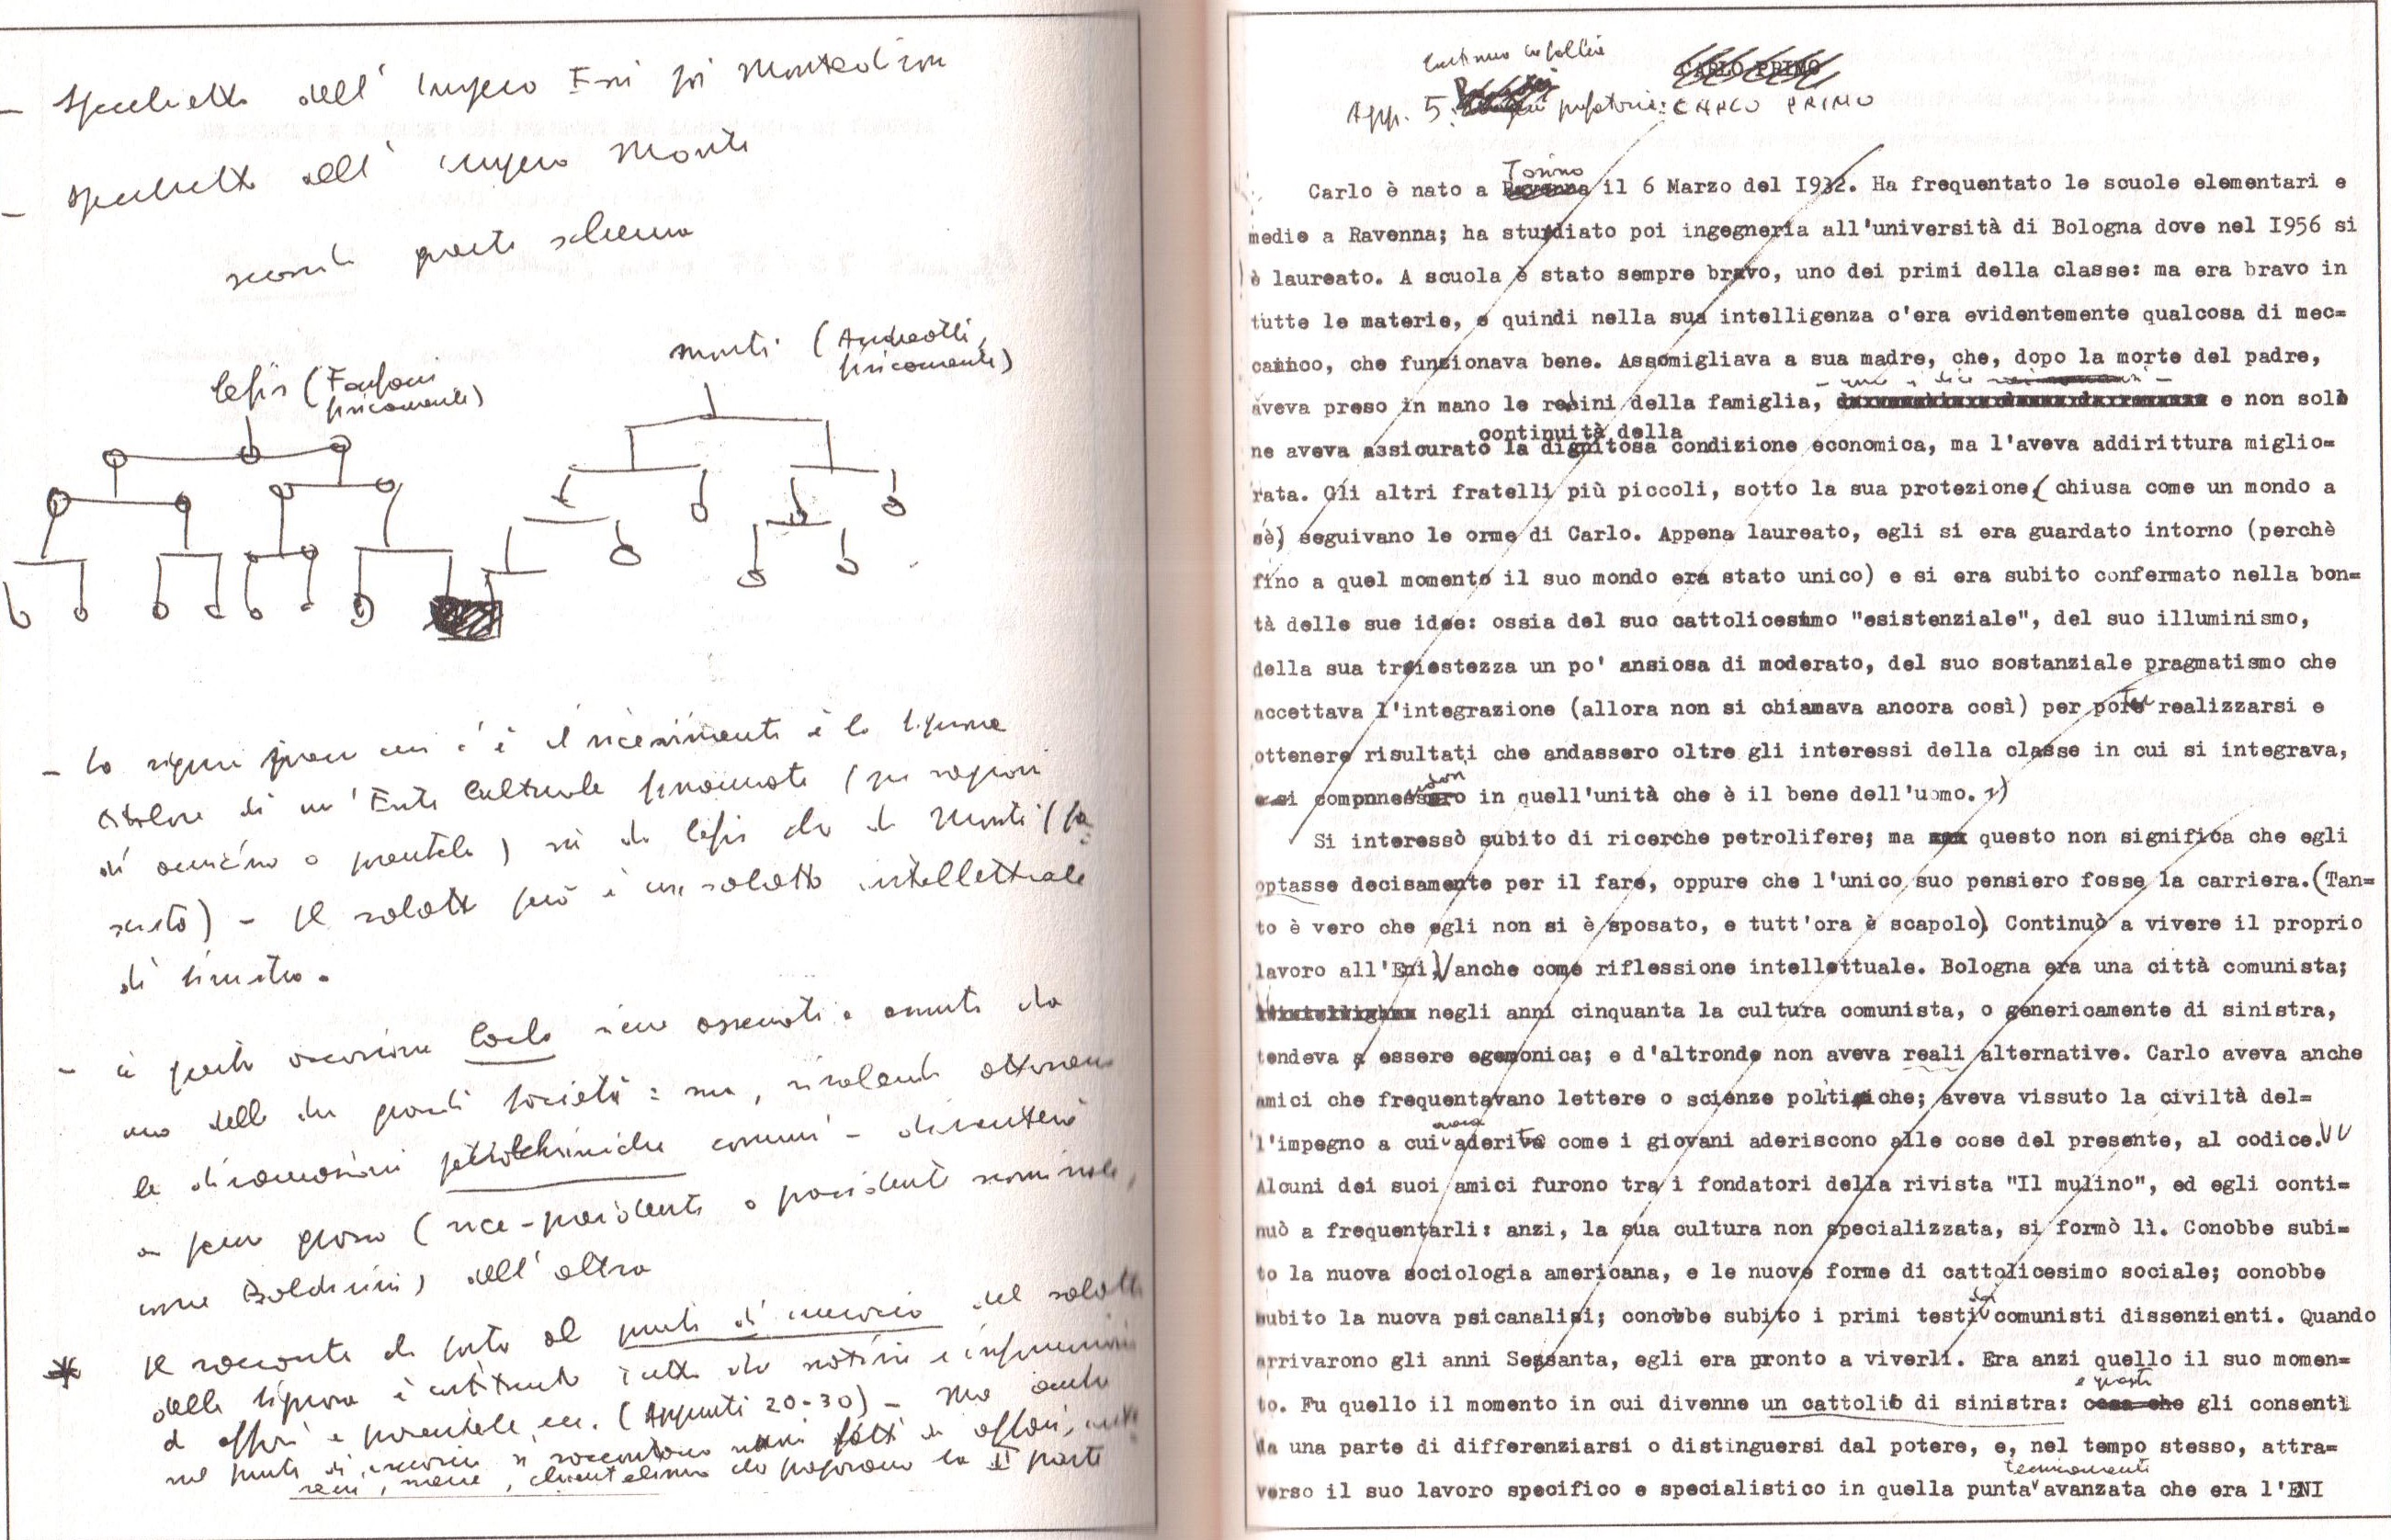 - Specchietto dell'impero Eni poi Montedison
- Specchietto dell'impero Monti
secondo questo schema
Cefis (Fanfani
fisicamente)
Monti (Andreotti,
fisicamente)
- La signora presso cui c'è il ricevimento è la
di un' Ente Culturale finanziato (per ragioni
di amicizia o parentela) sia da Cefis che da Monti
) - Il salotto però è un salotto intellettuale
di sinistra.
- in questa occasione Carlo viene
uno delle due grandi società: ma,
le petrolchimiche comuni - diventerà
un pezzo grosso (vice-presidente o presidente nominale,
come Boldrini) dell'altra
* Il racconto che porta al punto di inizio del salotto
della signora è costituito tutto da notizie e informazioni
d'affari e parentele, ecc. (Appunti 20-30) - Ma anche
nel punto di si raccontano fatti di affari,
, mene, clientelismo che preparano la II parte
App. 5. prefatoria: CARLO PRIMO
CARLO PRIMO
Torino
Carlo è nato a Ravenna il 6 Marzo del I932. Ha frequentato le scuole elementari e
medie a Ravenna; ha studiato poi ingegneria all'università di Bologna dove nel I956 si
è laureato. A scuola è stato sempre bravo, uno dei primi della classe: ma era bravo in
tutte le materie, e quindi nella sua intelligenza c'era evidentemente qualcosa di mec=
canico, che funzionava bene. Assomigliava a sua madre, che, dopo la morte del padre,
aveva preso in mano le redini della famiglia, e non solo
continuità della
ne aveva assicurato la dignitosa condizione economica, ma l'aveva addirittura miglio=
rata. Gli altri fratelli più piccoli, sotto la sua protezione (chiusa come un mondo a
sè) seguivano le orme di Carlo. Appena laureato, egli si era guardato intorno (perchè
fino a quel momento il suo mondo era stato unico) e si era subito confermato nella bon=
tà delle sue idee: ossia del suo cattolicesimo "esistenziale", del suo illuminismo,
della sua tristezza un po' ansiosa di moderato, del suo sostanziale pragmatismo che
accettava l'integrazione (allora non si chiamava ancora così) per poter realizzarsi e
ottenere risultati che andassero oltre gli interessi della classe in cui si integrava,
in quell'unità che è il bene dell'uomo.
Si interessò subito di ricerche petrolifere; ma questo non significa che egli
optasse decisamente per il fare, oppure che l'unico suo pensiero fosse la carriera. (Tan=
to è vero che egli non si è sposato, e tutt'ora è scapolo) Continuò a vivere il proprio
lavoro all'Eni, anche come riflessione intellettuale. Bologna era una città comunista;
negli anni cinquanta la cultura comunista, o genericamente di sinistra,
tendeva a essere egemonica; e d'altronde non aveva reali alternative. Carlo aveva anche
amici che frequentavano lettere o scienze politiche; aveva vissuto la civiltà del=
l'impegno a cui aveva aderito come i giovani aderiscono alle cose del presente, al codice.
Alcuni dei suoi amici furono tra i fondatori della rivista "Il mulino", ed egli conti=
nuò a frequentarli: anzi, la sua cultura non specializzata, si formò lì. Conobbe subi=
to la nuova sociologia americana, e le nuove forme di cattolicesimo sociale; conobbe
subito la nuova psicanalisi; conobbe subito i primi testi di comunisti dissenzienti. Quando
arrivarono gli anni Sessanta, egli era pronto a viverli. Era anzi quello il suo momen=
e questo
to. Fu quello il momento in cui divenne un cattolico di sinistra: cosa che gli consentì
da una parte di differenziarsi o distinguersi dal potere, e, nel tempo stesso, attra=
tecnicamente
verso il suo lavoro specifico e specialistico in quella punta avanzata che era l'ENI